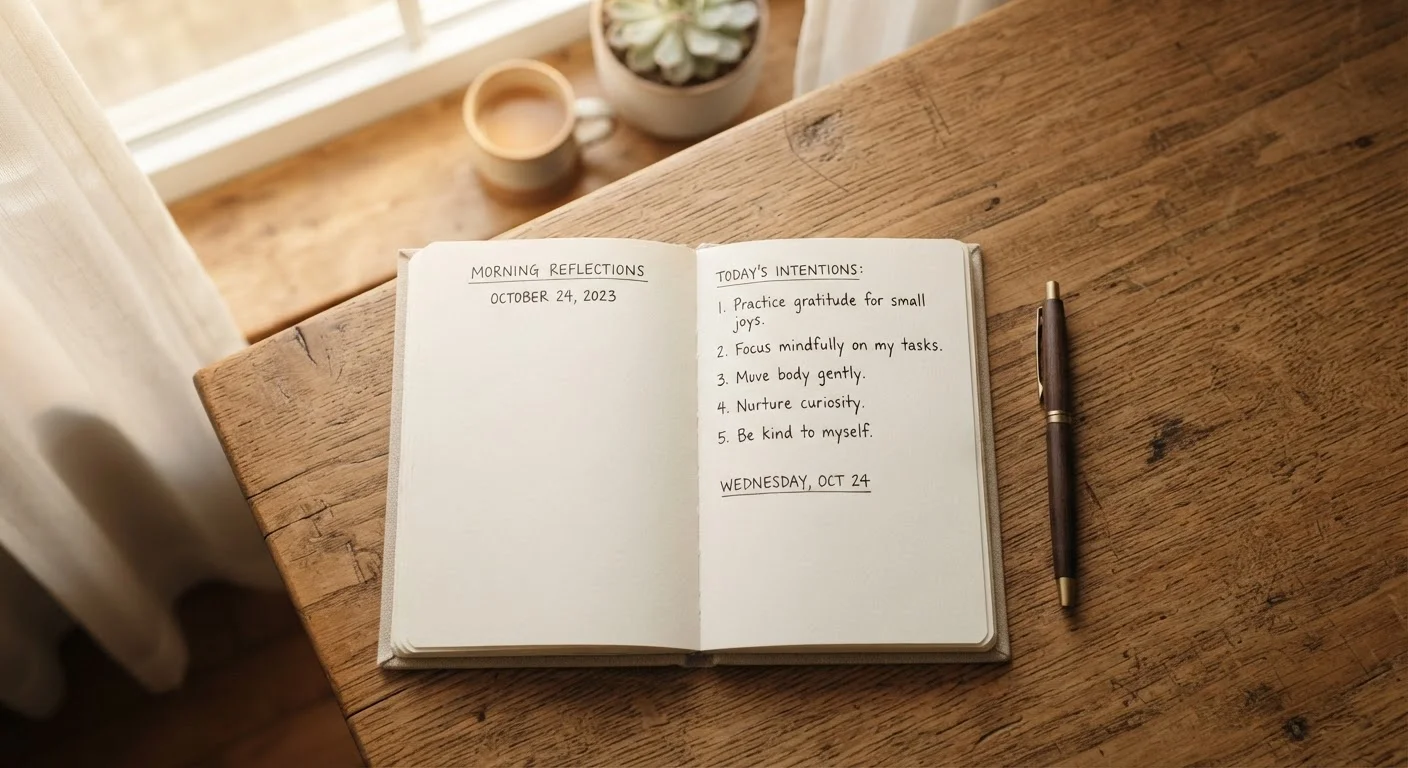 MORNING REFLECTIONS
OCTOBER 24, 2023
TODAY'S INTENTIONS:
1. Practice gratitude for small
joys.
2. Focus mindfully on my tasks.
3. Muve body gently.
4. Nurture curiosity.
5. Be kind to myself.
WEDNESDAY, OCT 24